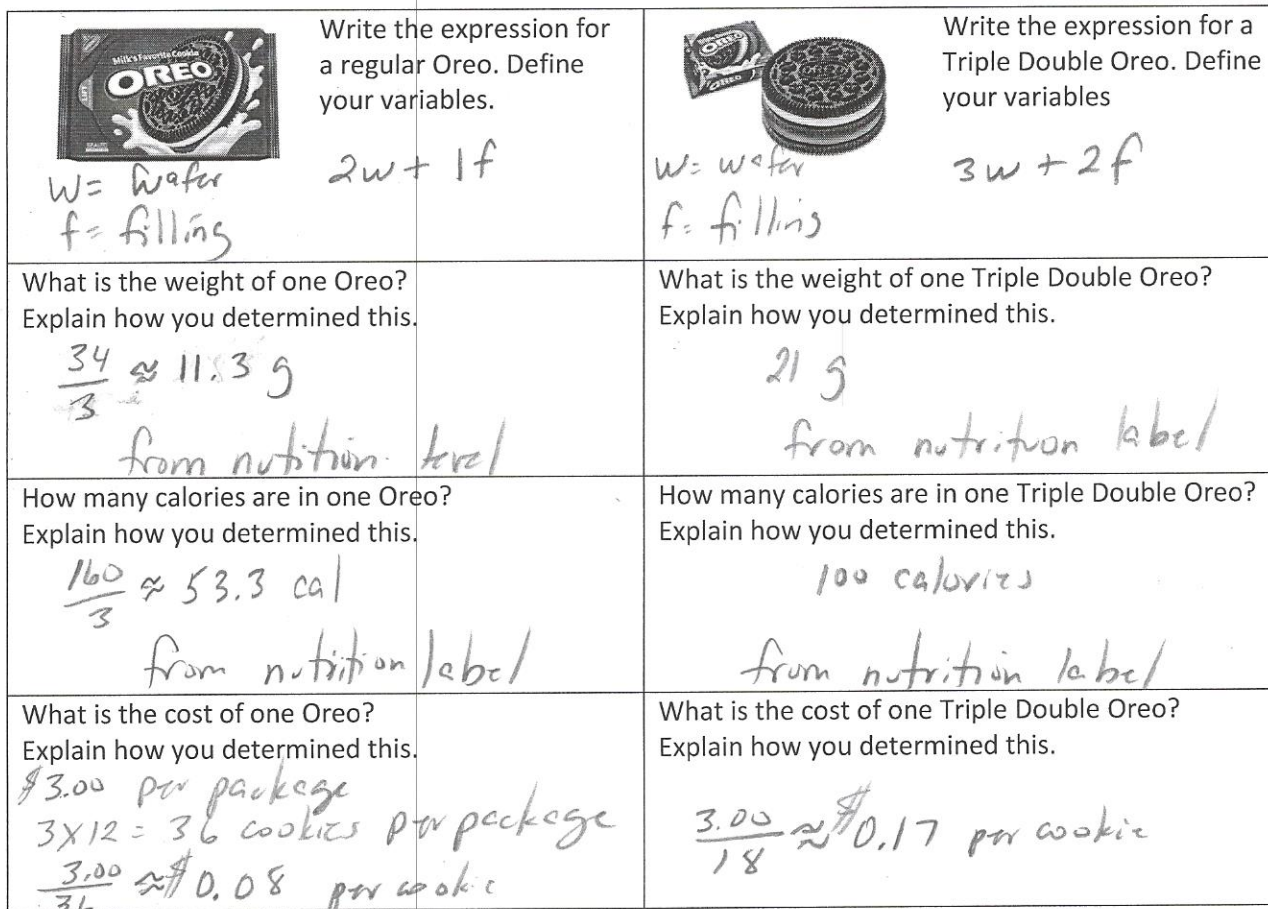 Milk's Favorite Cookie
OREO
Write the expression for
a regular Oreo. Define
your variables.
2w + 1f
w = wafer
f = filling
OREO
Write the expression for a
Triple Double Oreo. Define
your variables
w = wafer
3w + 2f
f = filling
What is the weight of one Oreo?
Explain how you determined this.
34/3 ≈ 11.3 g
from nutition
What is the weight of one Triple Double Oreo?
Explain how you determined this.
21 g
from nutrituon label
How many calories are in one Oreo?
Explain how you determined this.
160/3 ≈ 53.3 cal
from nutrition label
How many calories are in one Triple Double Oreo?
Explain how you determined this.
100 calories
from nutrition label
What is the cost of one Oreo?
Explain how you determined this.
$3.00 per package
3x12 = 36 cookies per package
3.00/36 ≈ $0.08 per cookie
What is the cost of one Triple Double Oreo?
Explain how you determined this.
3.00/18 ≈ $0.17 per cookie